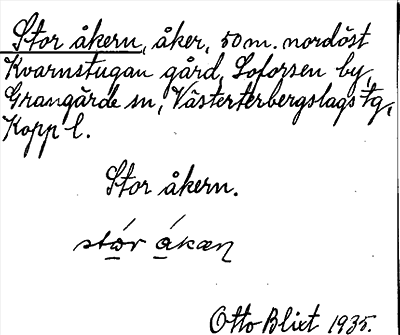 Stor åkern, åker, 50 m. nordöst
Kvarnstugan gård, Loforsen by,
Grangärde sn, Västerbergslags tg,
Kopp l.
Stor åkern.
Otto Blixt 1935.